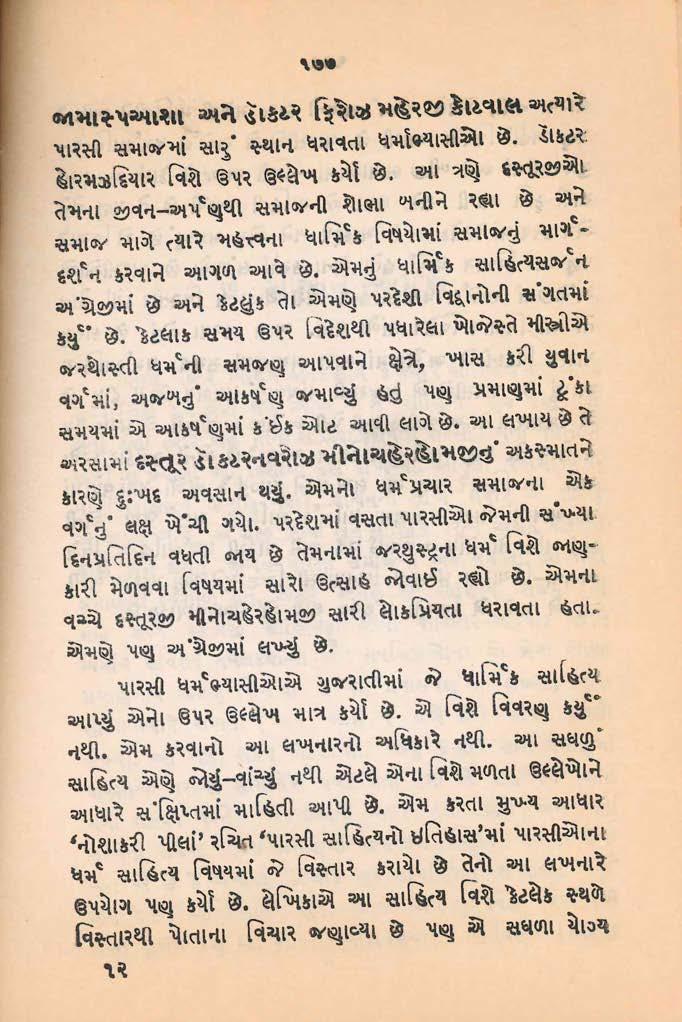 ૧૭૭
જામાસ્પઆશા અને ડૉકટર ફિરોઝ મહેરજી કોટવાલ અત્યારે
પારસી સમાજમાં સારું સ્થાન ધરાવતા ધર્માભ્યાસીઓ છે. ડૉકટર
હોરમઝદિયાર વિશે ઉપર ઉલ્લેખ કર્યો છે. આ ત્રણે દસ્તૂરજીઓ
તેમના જીવન–અર્પણથી સમાજની શોભા બનીને રહ્યા છે અને
સમાજ માગે ત્યારે મહત્ત્વના ધાર્મિક વિષયોમાં સમાજનું માર્ગ-
દર્શન કરવાને આગળ આવે છે. એમનું ધાર્મિક સાહિત્યસર્જન
અંગ્રેજીમાં છે અને કેટલુંક તો એમણે પરદેશી વિદ્વાનોની સંગતમાં
કર્યું છે. કેટલાક સમય ઉપર વિદેશથી પધારેલા ખોજેસ્તે મીસ્ત્રીએ
જરથોસ્તી ધર્મની સમજણ આપવાને ક્ષેત્રે, ખાસ કરી યુવાન
વર્ગમાં, અજબનું આકર્ષણ જમાવ્યું હતું પણ પ્રમાણમાં ટૂંકા
સમયમાં એ આકર્ષણમાં કંઈક ઓટ આવી લાગે છે. આ લખાય છે તે
અરસામાં દસ્તૂર ડૉકટરનવરોઝ મીનોચહેરહોમજીનું અકસ્માતને
કારણે દુઃખદ અવસાન થયું. એમનો ધર્મપ્રચાર સમાજના એક
વર્ગનું લક્ષ ખેંચી ગયો. પરદેશમાં વસતા પારસીઓ જેમની સંખ્યા
દિનપ્રતિદિન વધતી જાય છે તેમનામાં જરથુસ્ટ્રના ધર્મ વિશે જાણ-
કારી મેળવવા વિષયમાં સારો ઉત્સાહ જોવાઈ રહ્યો છે. એમના
વચ્ચે દસ્તૂરજી મીનોચહેરહોમજી સારી લોકપ્રિયતા ધરાવતા હતા.
એમણે પણ અંગ્રેજીમાં લખ્યું છે.
પારસી ધર્મભ્યાસીઓએ ગુજરાતીમાં જે ધાર્મિક સાહિત્ય
આપ્યું એનો ઉપર ઉલ્લેખ માત્ર કર્યો છે. એ વિશે વિવરણ કર્યું
નથી. એમ કરવાનો આ લખનારનો અધિકારે નથી. આ સઘળું
સાહિત્ય એણે જોયું–વાંચ્યું નથી એટલે એના વિશે મળતા ઉલ્લેખોને
આધારે સંક્ષિપ્તમાં માહિતી આપી છે. એમ કરતા મુખ્ય આધાર
‘નોશાકરી પીલાં’ રચિત ‘પારસી સાહિત્યનો ઇતિહાસ’માં પારસીઓના
ધર્મ સાહિત્ય વિષયમાં જે વિસ્તાર કરાયો છે તેનો આ લખનારે
ઉપયોગ પણ કર્યો છે. લેખિકાએ આ સાહિત્ય વિશે કેટલેક સ્થળે
વિસ્તારથી પોતાના વિચાર જણાવ્યા છે પણ એ સઘળા યોગ્ય
૧૨